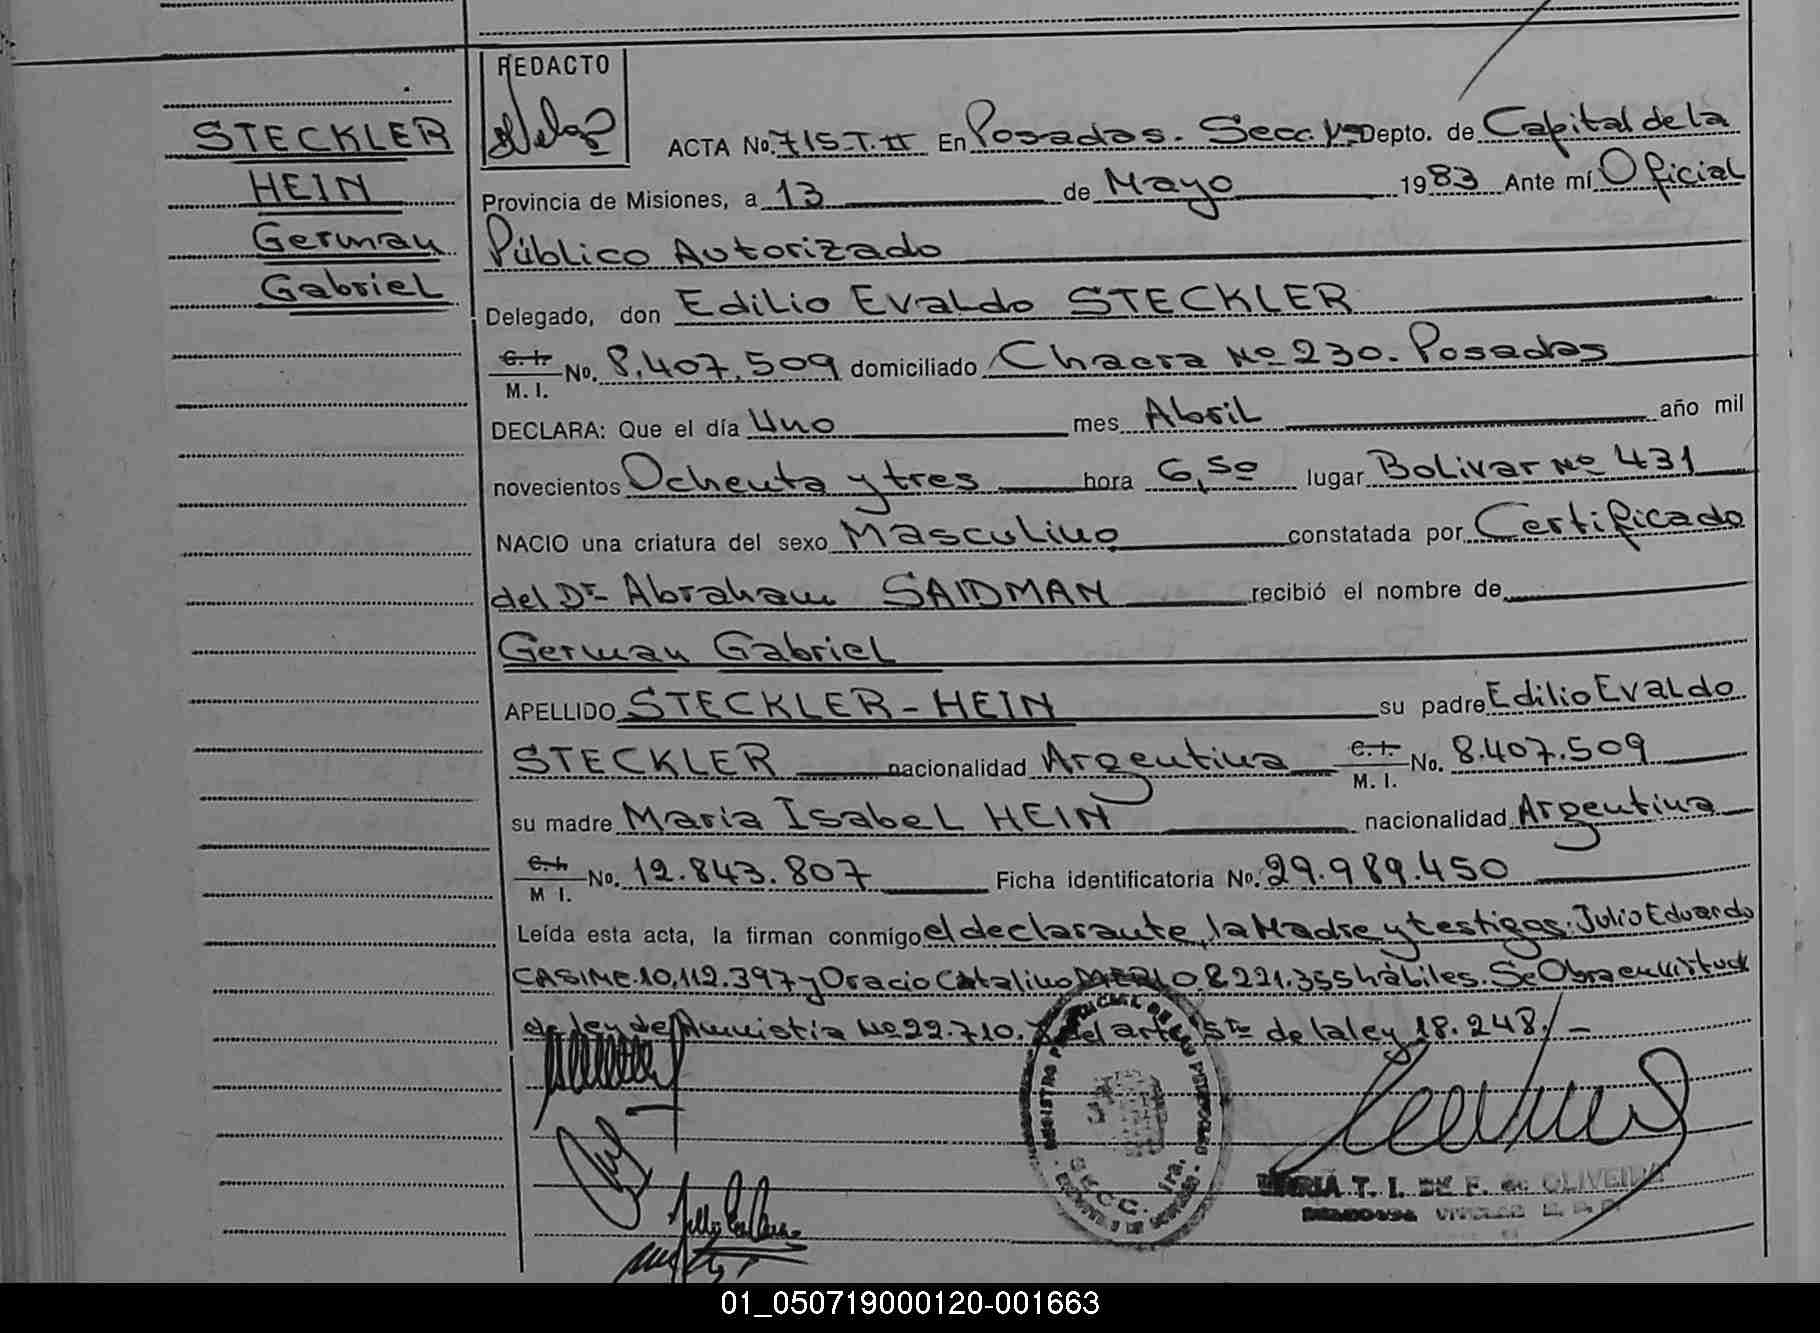 REDACTO
STECKLER
HEIN
German
Gabriel
ACTA No. 715-T.II En Posadas. Secc. 1ª Depto. de Capital de la
Provincia de Misiones, a 13 de Mayo 1983 Ante mí Oficial
Público Autorizado
Delegado, don Edilio Evaldo STECKLER
C. I. M. I. No. 8.407.509 domiciliado Chacra Nº 230. Posadas
DECLARA: Que el día Uno mes Abril año mil
novecientos Ochenta y tres hora 6,50 lugar Bolivar Nº 431
NACIO una criatura del sexo Masculino constatada por Certificado
del Dr. Abraham SAIDMAN recibió el nombre de
German Gabriel
APELLIDO STECKLER-HEIN su padre Edilio Evaldo
STECKLER nacionalidad Argentina C. I. M. I. No. 8.407.509
su madre Maria Isabel HEIN nacionalidad Argentina
C. I. M I. No. 12.843.807 Ficha identificatoria No. 29.989.450
Leída esta acta, la firman conmigo el declarante, la Madre y testigos: Julio Eduardo
10,112.397 y Oracio Catalino 8.221.355 hábiles. Se Obra en virtud
de ley de Amnistia Nº 22.710. y del art. 5to de la ley 18.248.-
REGISTRO PROVINCIAL DE LAS PERSONAS
SECC. 1ra.
MARIA T. I. DE F. de OLIVEIRA
01_050719000120-001663